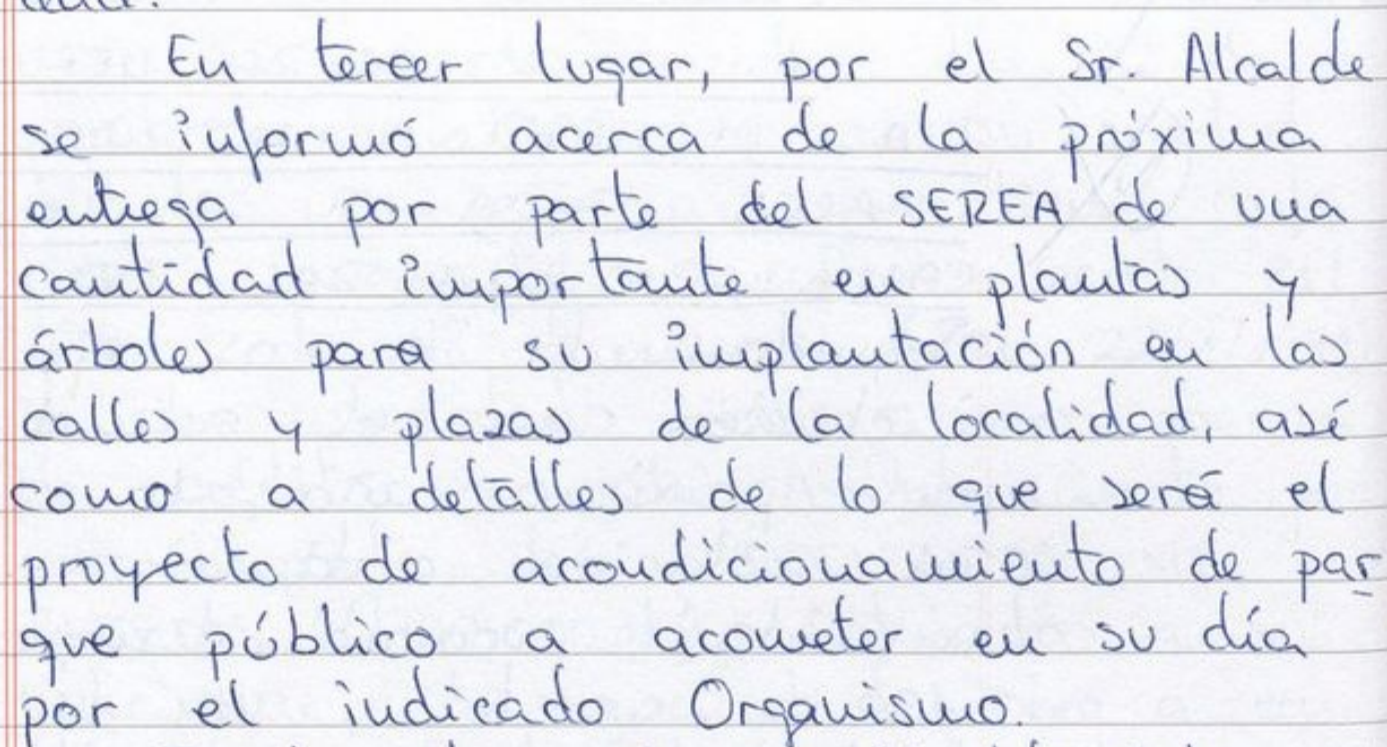 En tercer lugar, por el Sr. Alcalde
se informó acerca de la próxima
entrega por parte del SEREA de una
cantidad importante en plantas y
árboles para su implantación en las
calles y plazas de la localidad, así
como a detalles de lo que será el
proyecto de acondicionamiento de par
que público a acometer en su día
por el indicado Organismo.